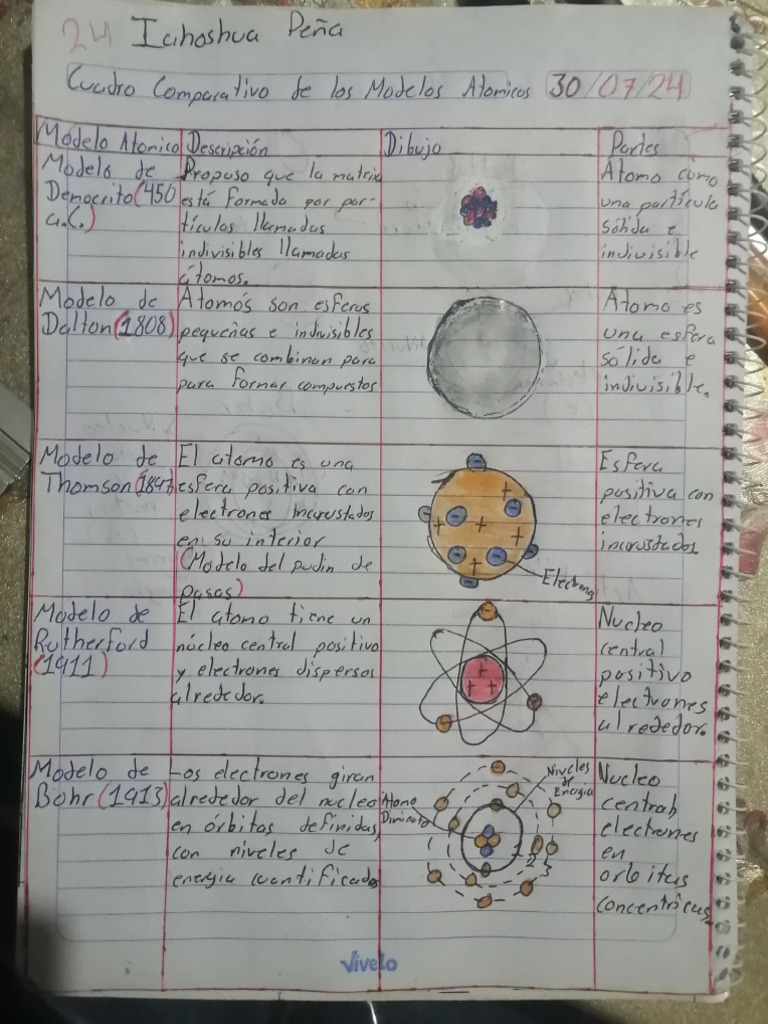 24 Iahoshua Peña
Cuadro Comparativo de los Modelos Atomicos 30/07/24
Modelo Atomico Descripción Dibujo Partes
Modelo de
Democrito (450
a.C.)
Propuso que la matria
está formada por par-
tículas llamadas
indivisibles llamadas
átomos.
Átomo como
una partícula
sólida e
indivisible
Modelo de
Dalton (1808)
Átomós son esferas
pequeñas e indivisibles
que se combinan para
para formar compuestos
Átomo es
una esfera
sólida e
indivisible.
Modelo de
Thomson (1897)
El atomo es una
esfera positiva con
electrones incrustados
en su interior
(Modelo del pudin de
pasas)
Electrons
Esfera
positiva con
electrones
incrustados
Modelo de
Rutherford
(1911)
El atomo tiene un
núcleo central positivo
y electrones dispersos
alrededor.
Nucleo
central
positivo
electrones
alrededor.
Modelo de
Bohr (1913)
Los electrones giran
alrededor del nucleo
en órbitas definidas
con niveles de
energia cuantificados
Atomo
Niveles
de
Energia
1
2
3
Nucleo
central
electrones
en
orbitas
concentricas.
Vívelo